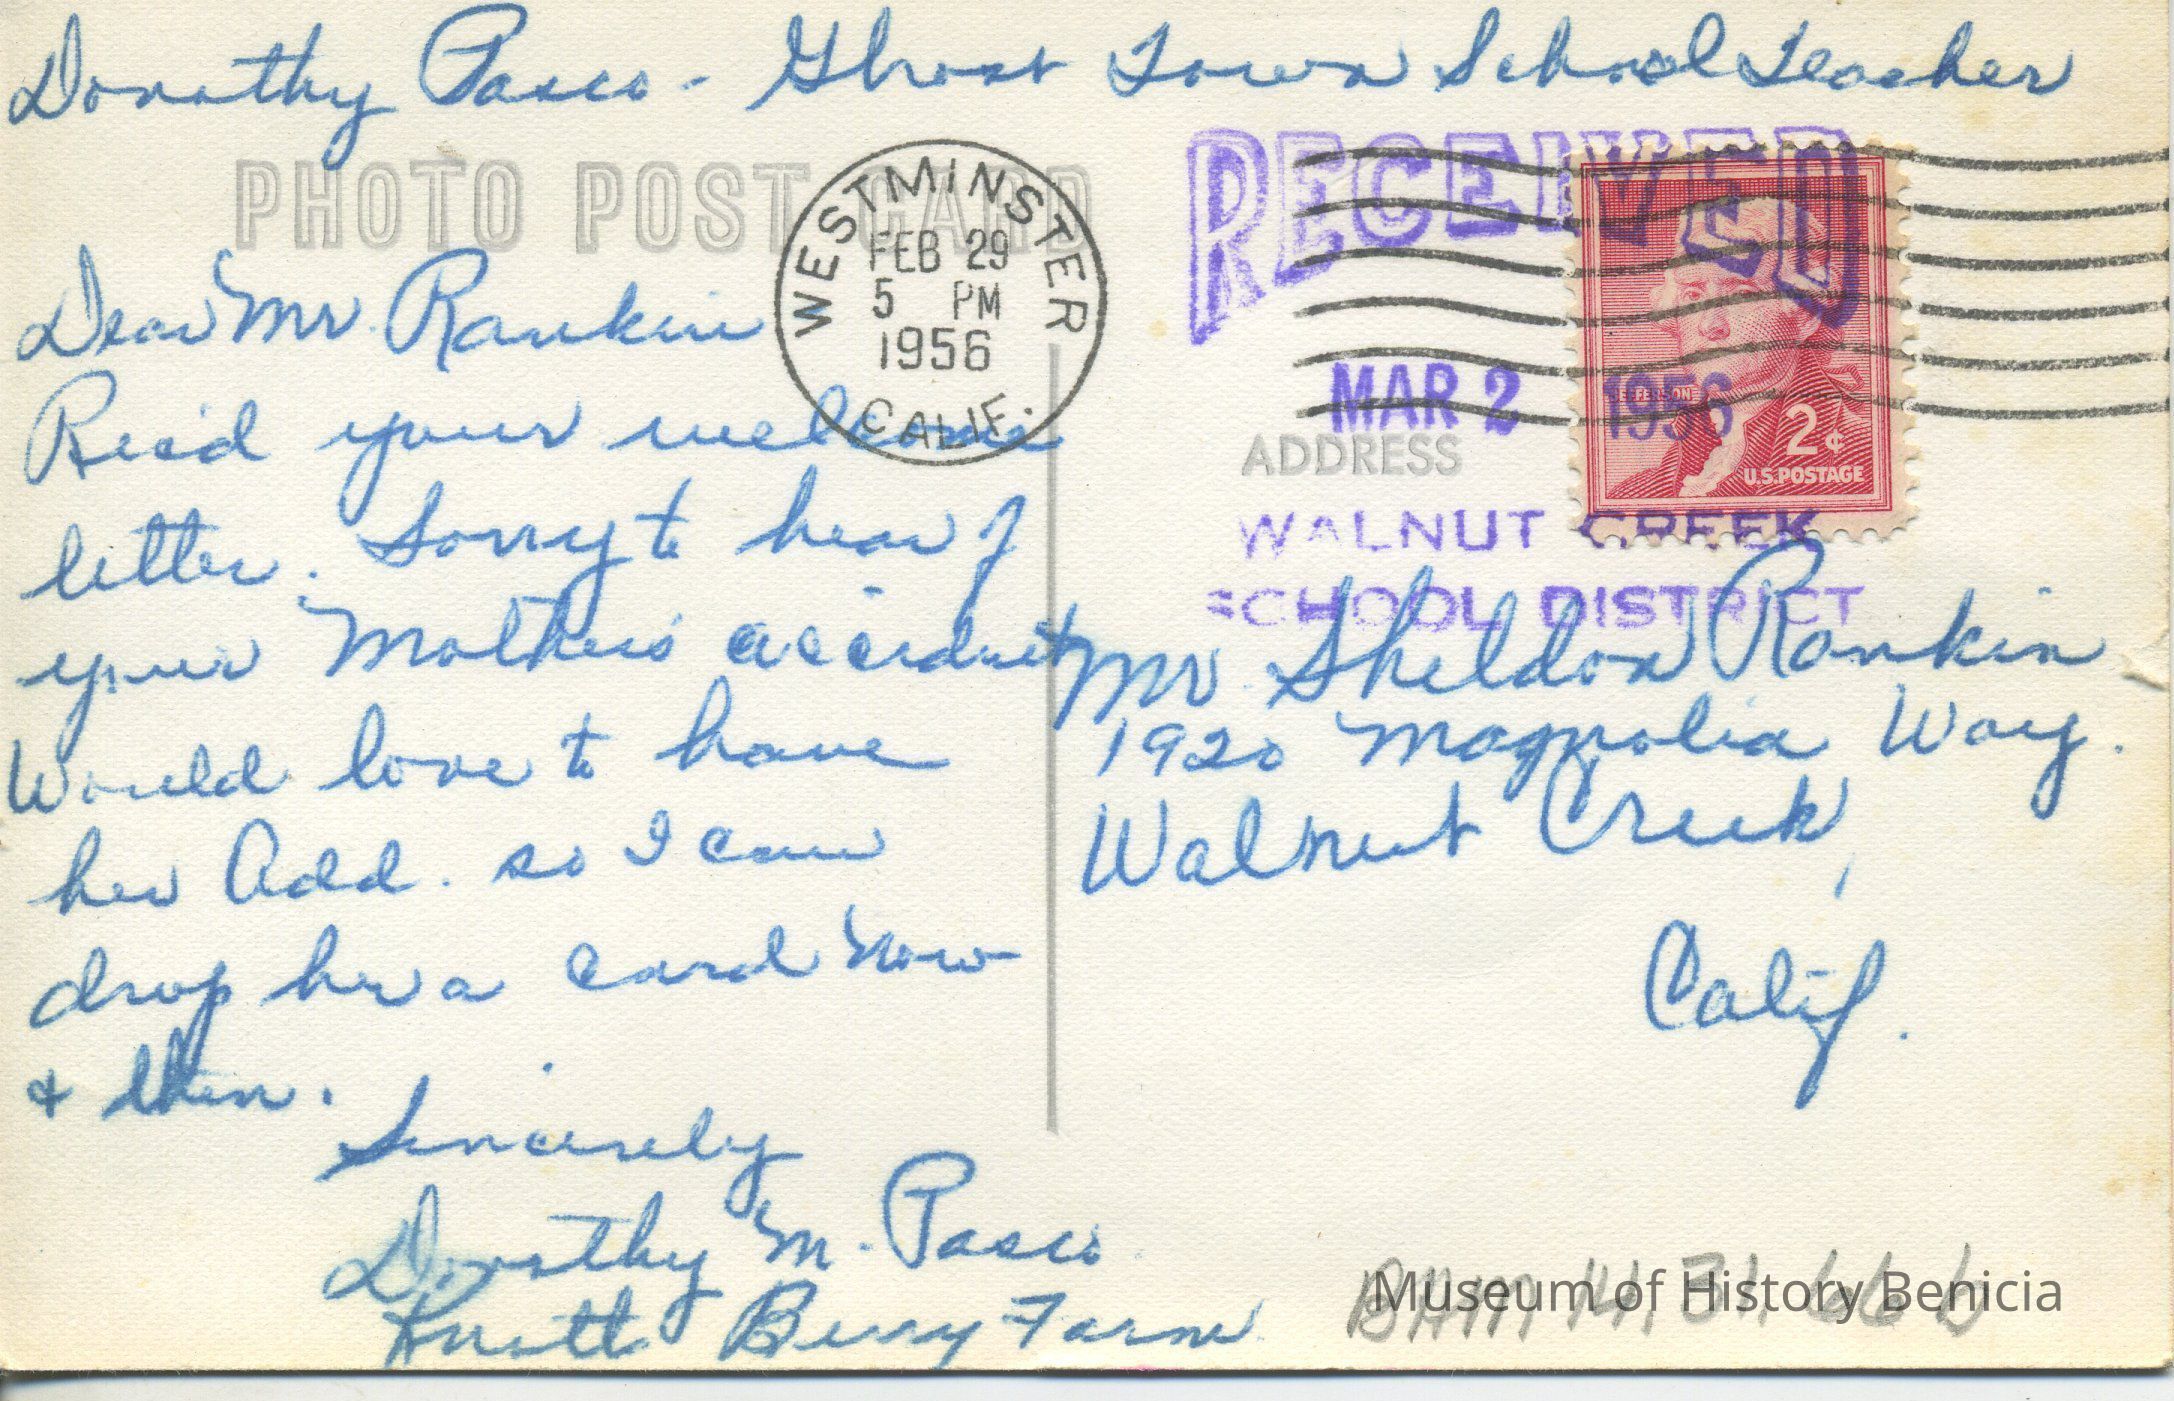 Dorothy Pasco - Ghost Town School Teacher
PHOTO POST CARD
WESTMINSTER
FEB 29
5 PM
1956
CALIF.
RECEIVED
MAR 2 1956
WALNUT CREEK
SCHOOL DISTRICT
JEFFERSON
2¢
U.S. POSTAGE
Dear Mr. Rankin
Rec'd your welcome
letter. Sorry to hear of
your Mother's accident
Would love to have
her Add. so I can
drop her a card now
& then.
Sincerely
Dorothy M. Pasco
Knott Berry Farm
ADDRESS
Mr. Sheldon Rankin
1920 Magnolia Way.
Walnut Creek,
Calif.
Museum of History Benicia